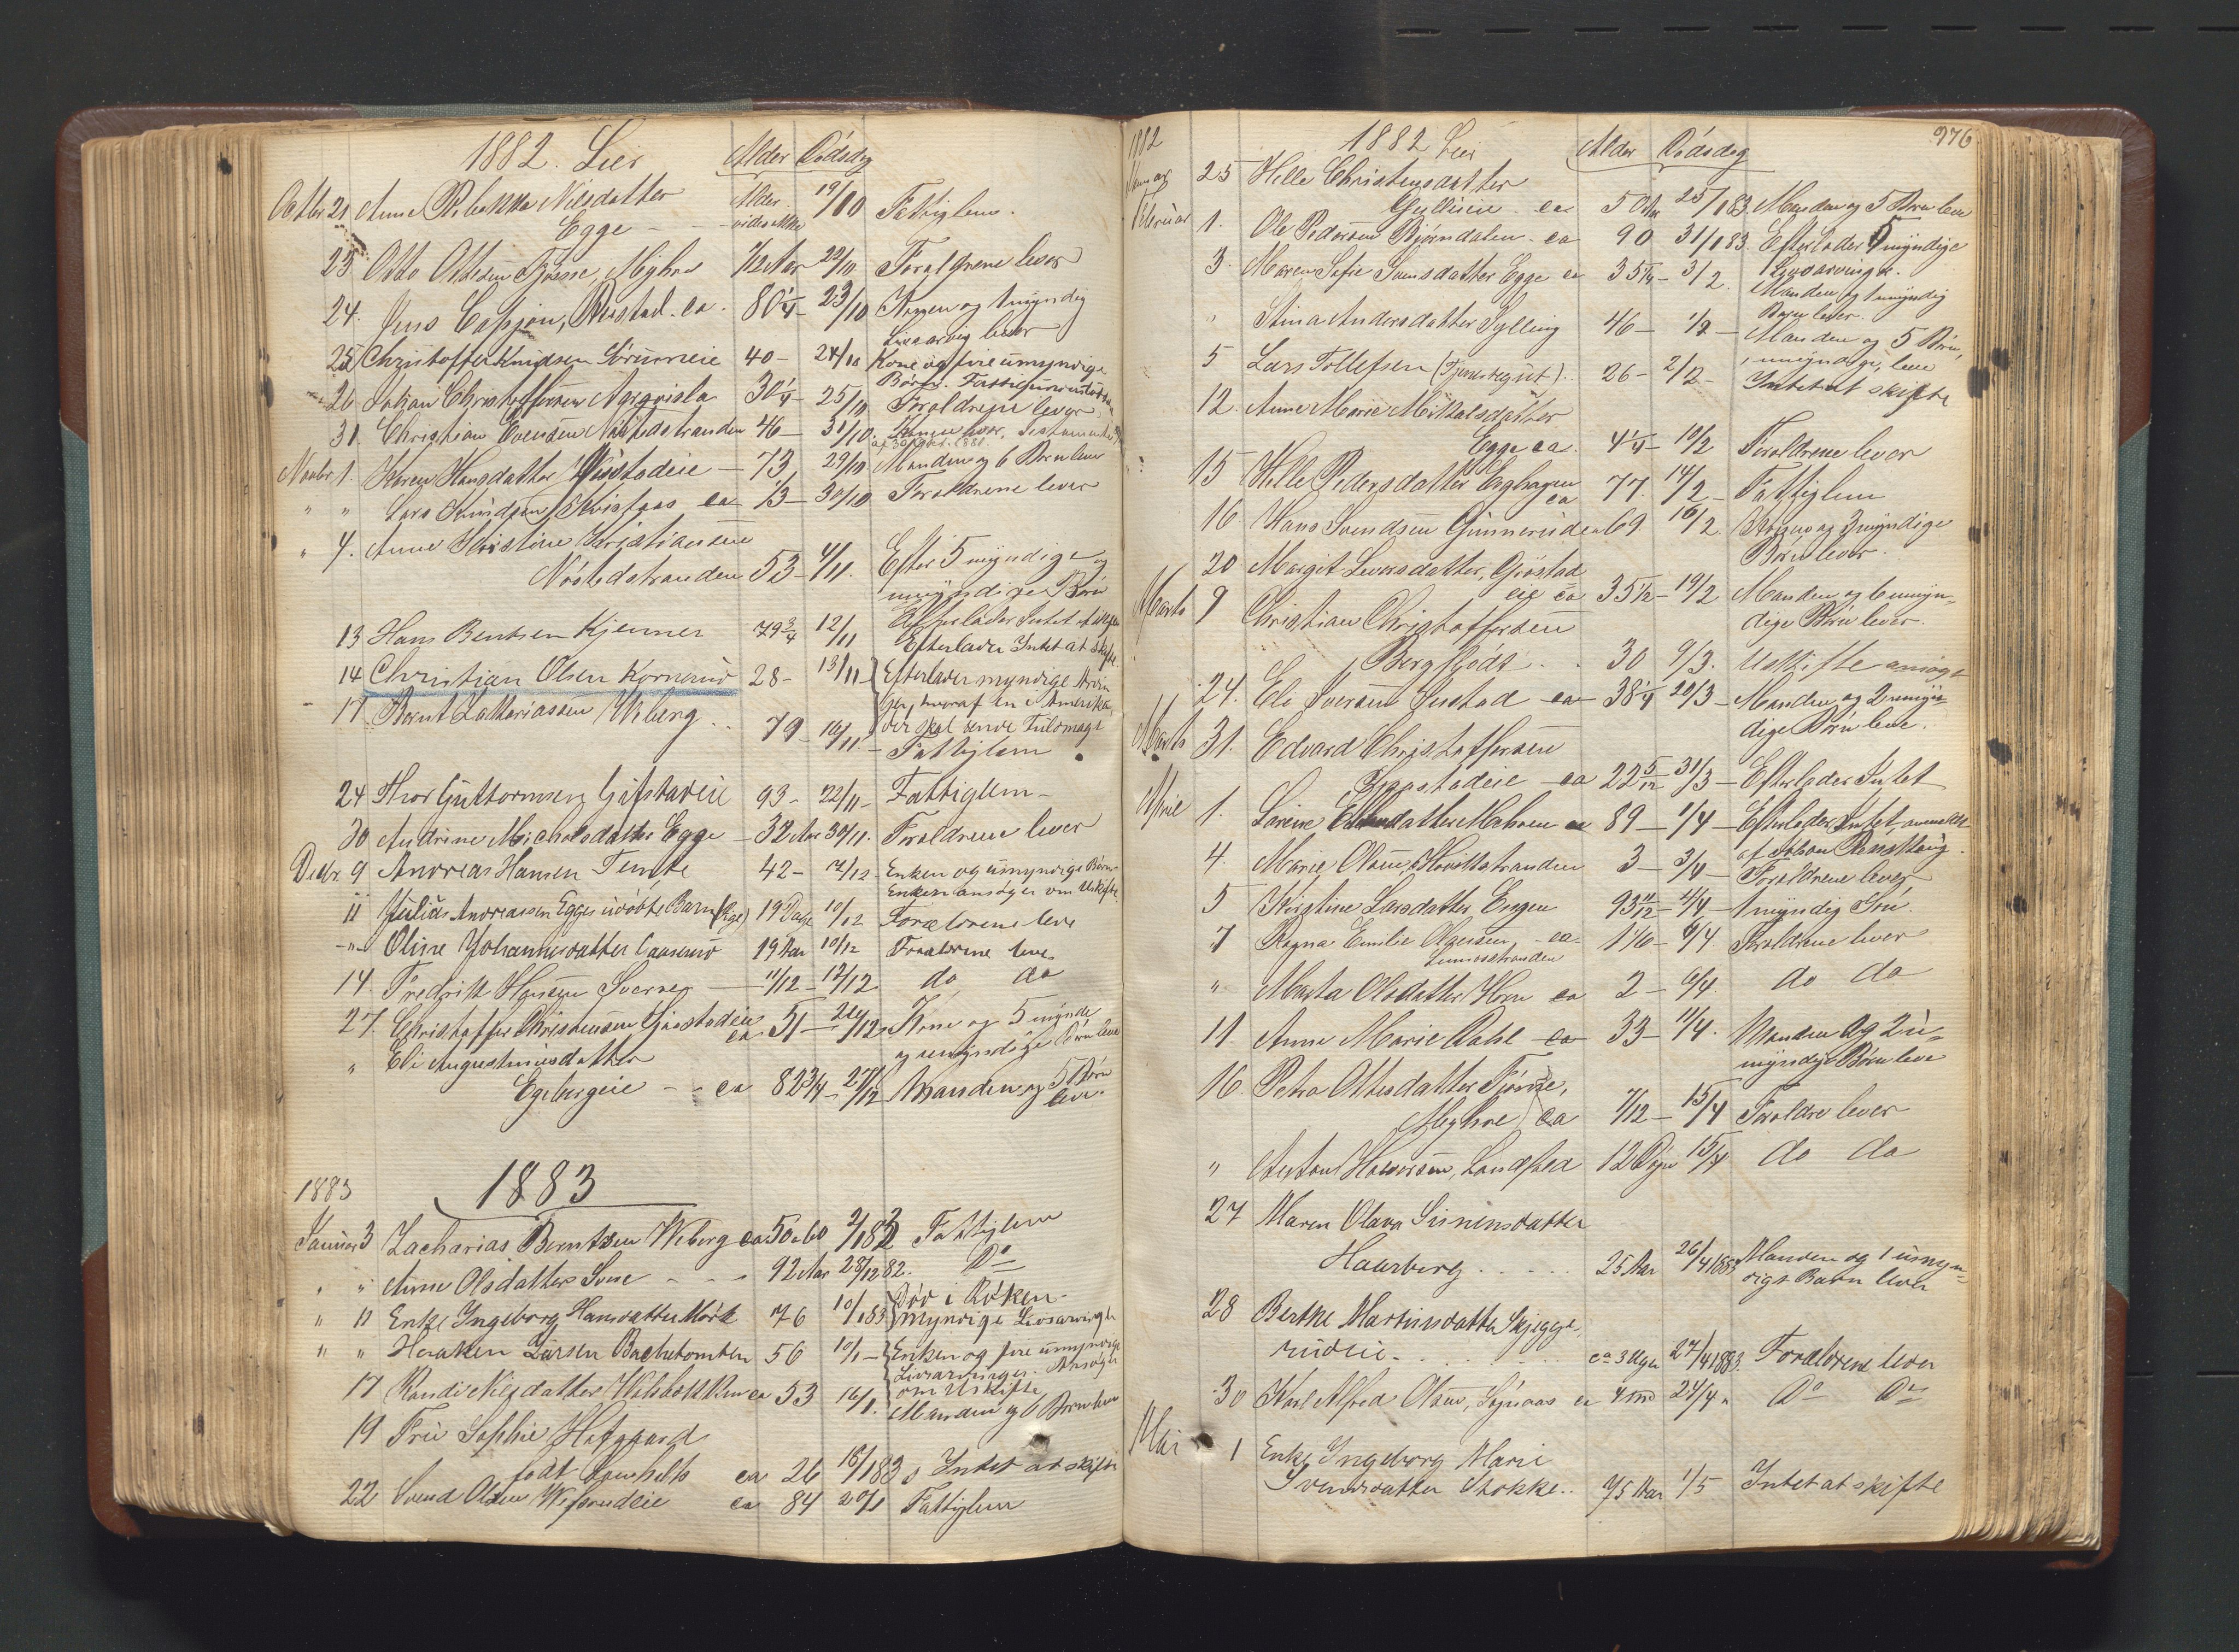 1882. Lier Alder Dødsdag
Octbr 21 Anne Rebekka Nilsdatter Alder 19/10 Fattiglem.
Egge - - vides ikke
23 Otto Ottesen Myhre 1/2 Aar 22/10 Forældrene lever
24. Jens ca. 80 1/4 - 23/10 Konen og 1 myndig
Livsarving lever
25 Christoffer Knudsen 40 - 24/10 Kone og fire umyndige
Børn.
26 Johan Christoffersen 30 1/4 - 25/10 Forældrene lever
31. Christian Evensen Nøstedstranden 46 - 31/10.
Novbr 1. Karen Hansdatter - 73 29/10 Manden og 6 Børn lever
" " Lars Knudsen, ca 1/3 - 30/10 Forældrene lever
" 4. Anne Kristine Kristiansen
Nøstedstranden 53 - 4/11. Efter 5 myndige og
umyndige Børn
13 Hans Bentsen Kjenner 79 3/4 12/11 Efterlader Intet at skifte
Efterlader Intet at skifte.
14 Christian Olsen Kornerud 28 - 13/11 Efterlader myndige Arvin
ger, hvoraf en i Amerika,
17 Bernt Zakkariassen Wiberg. 79 - 16/11. - der skal sende Fuldmagt
Fattiglem
24 Thor Guttormsen Gifstadeie 93 - 22/11 - Fattiglem -
30 Andrine Michelsdatter Egge - 32 Aar 30/11. Forældrene lever
Decbr. 9 Andreas Hansen 42 - 7/12 - Enken og umyndige Børn
Enken ansøger om Uskifte.
11 Julius Andreassen Egges udøbte Barn 19 Dage 10/12 Forældrene leve
- " - Oline Johannesdatter 19 Aar 10/12 Forældrene leve
14. Fredrik Hansen - 11/12 - 12/12 do do
27. Christoffer Christensen Gjøstadeie ca 51 - 24/12 Kone og 5 mynde
og umyndige Børn leve
" Eli Augustinusdatter
Egebergeie - - ca 82 3/4 - 27/12 Manden og 5 Børn
leve.
1883 1883
Januar 3 Zacharias Berntsen Wiberg ca 50 a 60 2/1 82 Fattiglem
" " Anne Olsdatter - - - 92 Aar 28/12 82. Do
" 11 Enke Ingeborg Hansdatter Mørk 76 10/1 83 Død i Røken -
myndige Livsarvinge
" " Haaken Larsen Bachetomten 56 10/1 - Enken og fire umyndige
Livsarvinger. Ansøger
om Uskifte
17 Randi Nilsdatter ca 53 16/1. Manden og 6 Børn leve
19 Frue Sophie Hofgaard
født ca 26 18/1 83 Intet at skifte
22 Svend Olsen ca 84 20/1 Fattiglem
976
1882 1882 Lier Alder Dødsdag
Januar 25 Helle Christensdatter
Gullieie ca 50 Aar 25/1 83. Manden og 5 Børn leve
Februar 1. Ole Pedersen Bjørndalen - ca 90 31/1 83. Efterlader 5 myndige
Livsarvinger.
3. Maren Sofie Svensdatter Egge ca 35 1/4 - 3/2. Manden og 1 myndig
Barn lever.
" Stina Andersdatter Sylling 46 - 1/2 - Manden og 5 Børn,
umyndige, leve
5 Lars Tollefsen (Tjenestegut). 26 - 2/2 - Intet at skifte
12. Anne Marie Mikalsdatter
Egge ca. 4 1/4 - 10/2 Forældrene lever
15 Helle Pedersdatter ca 77. 14/2 - Fattiglem
16 Hans Svendsen Ginnerud ca 69. 16/2 Konen og 3 myndige
Børn lever.
20 Margit Iversdatter, Gjøstad
eie ca 35 1/2 - 19/2 Manden og 6 umyn-
dige Børn lever.
Marts 9 Christian Christoffersen
Bergflødt . . 30 9/3. Uskifte ansøgt
24. Eli Iversen ca 38 1/4 20/3 - Manden og 2 umyn-
dige Børn leve.
Marts 31. Edvard Christoffersen
Gjøstadeie - ca 22 5/12 31/3 - Efterlader Intet
April 1. Lorine 89 - 1/4 - Efterlader Intet, anmeldt
af Johan
4. Marie Olsen, 3 - 3/4 - Forældrene lever
5 Kirstine Larsdatter Engen 93 11/12 - 4/4 - 1 myndig Søn.
7 Ragna Emilie Olausen - ca 1 1/6 - 6/4. Forældrene lever
" Marta Olsdatter Horn ca 2 - 6/4. do do
11 Anne Marie Dahl - ca 33 - 11/4. Manden og 2 u-
myndige Børn leve
16. Petra Ottesdatter
Myhre ca 7/12 - 15/4 Forældre lever
" Anton Halvorsen, Landfald 12 Døgn 15/4 do do
27 Maren Olava Simensdatter
Haarberg . . . . . 25 Aar 26/4 1883 Manden og 1 umyn-
digt Barn lever
28 Berthe Martinsdatter Skjegge-
rudeie. . . . . . ca 3 Uger 27/4 1883. Forældrene lever
30 Karl Alfred Olsen, ca 4 Md 24/4 " Do Do
Mai 1 Enke Ingeborg Marie
Svendsdatter Stokke.. 75 Aar 1/5 Intet at skifte